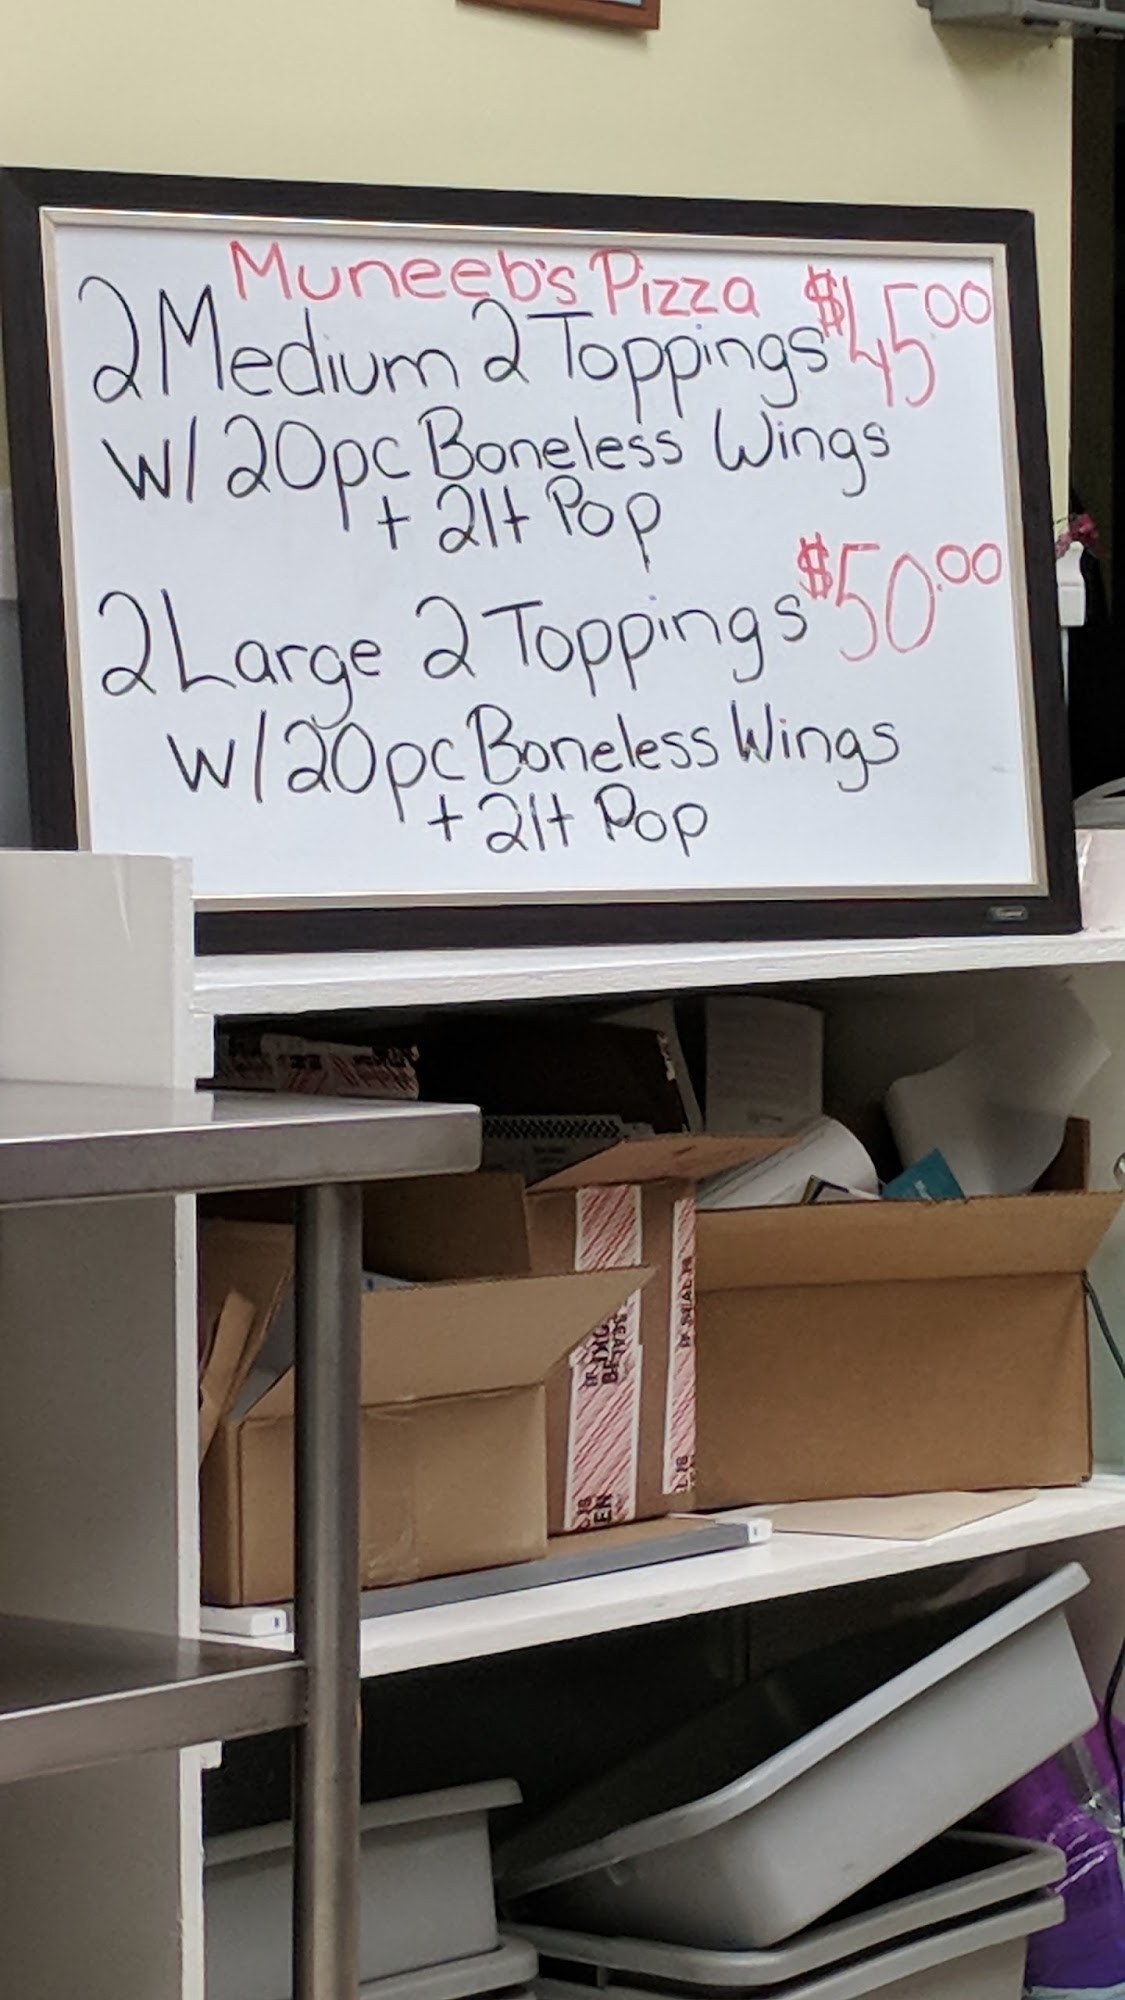 Muneeb's Pizza
2 Medium 2 Toppings $45.00
w/ 20pc Boneless Wings
+ 2lt Pop
2 Large 2 Toppings $50.00
w/ 20pc Boneless Wings
+ 2lt Pop